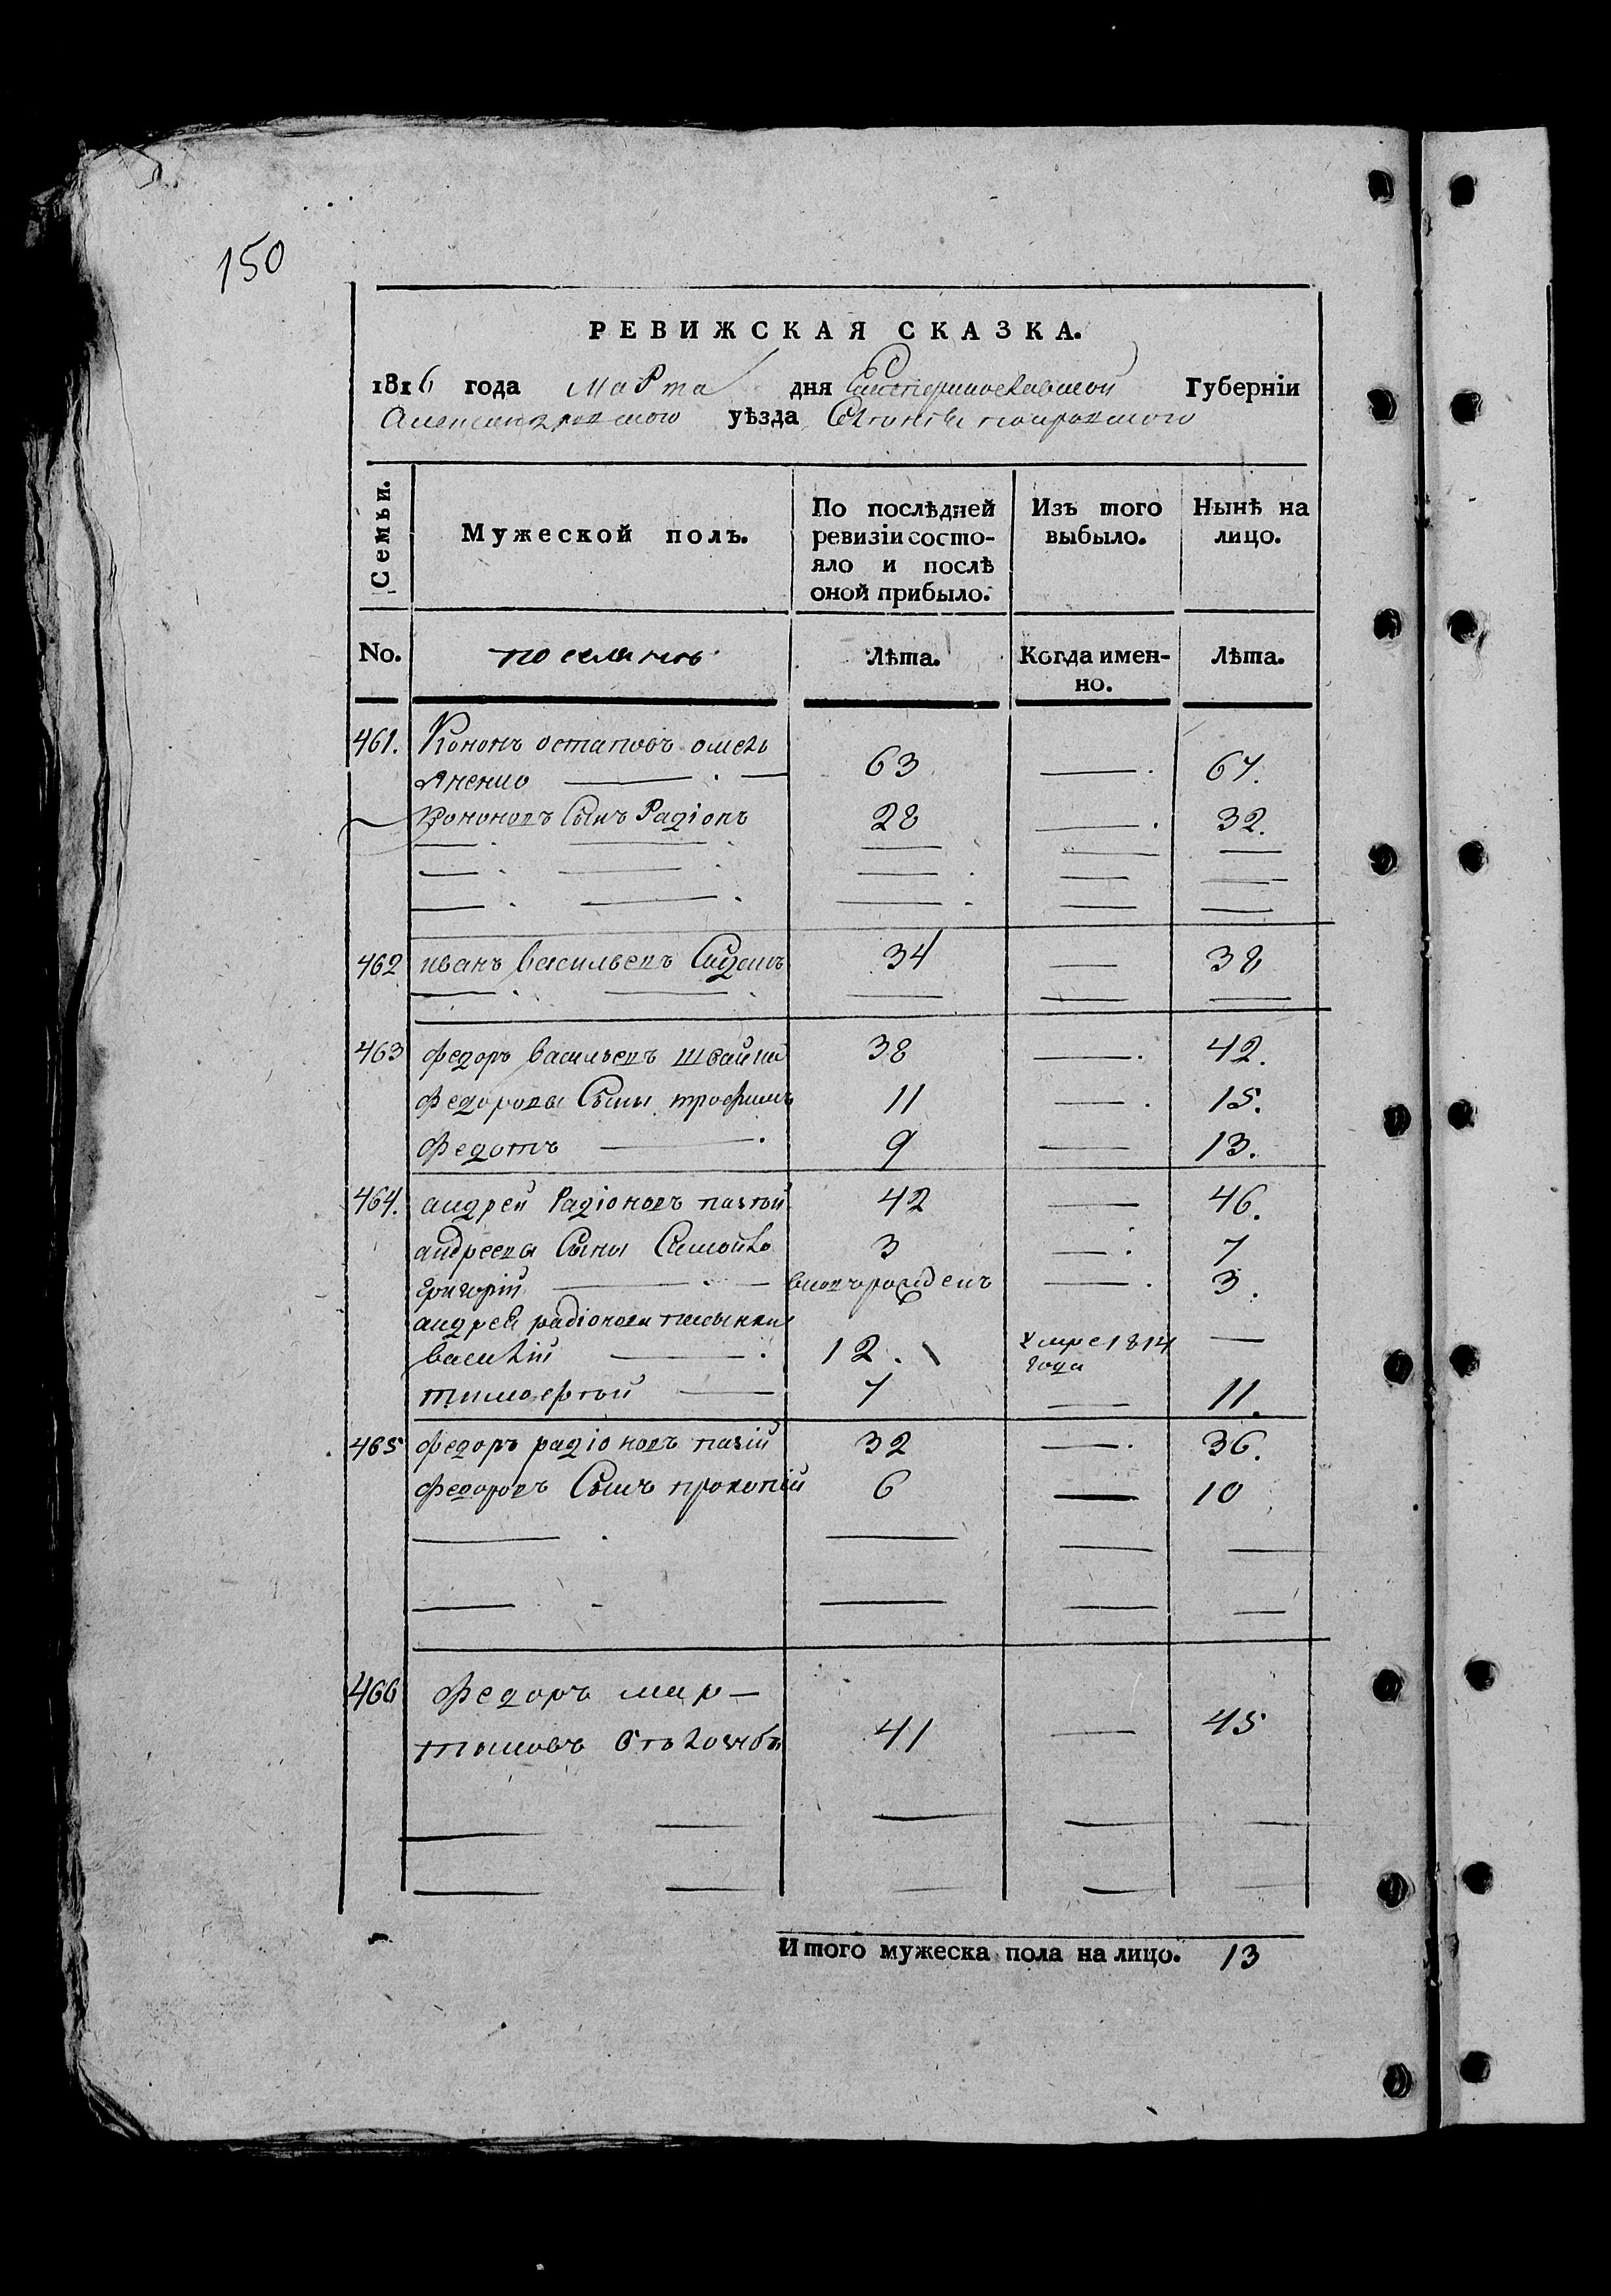 150
РЕВИЖСКАЯ СКАЗКА.
1816 года марта дня Екатеринославской Губерніи
Александровского уѣзда Селения покровского
Семьи.
Мужеской полъ.
По послѣдней ревизіи состо-
яло и послѣ
оной прибыло.
Изъ того
выбыло.
Нынѣ на
лицо.
No.
поселянъ
Лѣта.
Когда имен-
но.
Лѣта.
461. Кононъ остаповъ омель
яненко 63 67.
Кононовъ Сынъ Радіонъ 28 32.
462 иванъ васильевъ 34 38
463 федоръ васильевъ швайка 38 42.
федоровы Сыны трофимъ 11 15.
федотъ 9 13.
464. андрей Радіоновъ 42 46.
андреевы Сыны Самойло 3 7
григорій вновьрожденъ 3.
андрея радіонова пасынки
василій 12. умре 1814
года
тимофѣй 7 11.
465 федоръ радіоновъ 32 36.
федоровъ Сынъ прокопій 6 10
466 федоръ мар-
тыновъ 41 45
Итого мужеска пола на лицо. 13